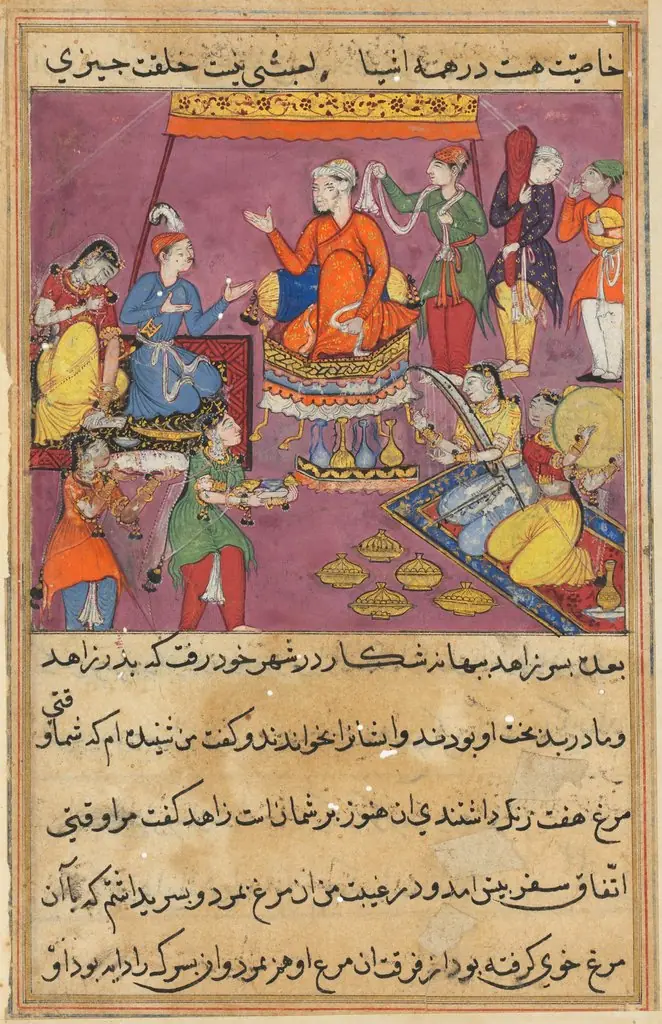 خاصیّت هست در همه اشیا لعبثی نیست خلقت چیزی
بعده بسر زاهد ببهانه شکار در شهر خود رفت که بدر زاهد
و مادر بدبخت او بودند و ایشانرا بخواندند و کفت من شنیده ام که شما وقتی
مرغ هفت رنک داشتندی ان هنوز بر شمان است زاهد کفت مرا وقتی
اتّفاق سفر بیش امد و در غیبت من ان مرغ بمرد و بسر یداشتم که باآن
مرغ خوی کرفته بود از فرقت ان مرغ او هم بمرد و ان بسر که را دایه بود او